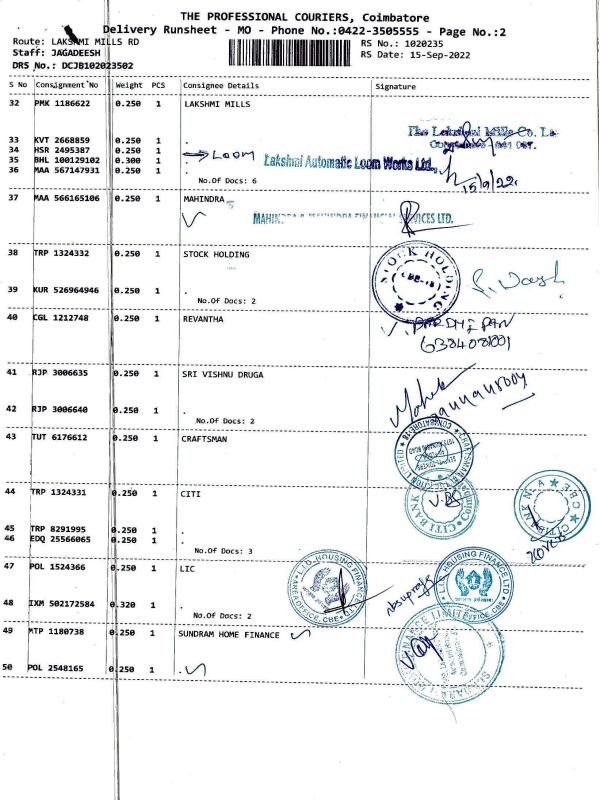 THE PROFESSIONAL COURIERS, Coimbatore
Delivery Runsheet - MO - Phone No.:0422-3505555 - Page No.:2
Route: LAKSHMI MILLS RD
RS No.: 1020235
Staff: JAGADEESH
RS Date: 15-Sep-2022
DRS No.: DCJB102023502
S No Consignment No Weight PCS Consignee Details Signature
32 PMK 1186622 0.250 1 LAKSHMI MILLS
The Lakshmi Mills Co. L
33 KVT 2668859 0.250 1 .
34 HSR 2495387 0.250 1 → LOOM
35 BHL 100129102 0.300 1 Lakshmi Automatic Loom Works Ltd.,
36 MAA 567147931 0.250 1 .
No.Of Docs: 6
15/9/22.
37 MAA 566165106 0.250 1 MAHINDRA
MAHINDRA & MAHINDRA FINANCIAL SERVICES LTD.
38 TRP 1324332 0.250 1 STOCK HOLDING
STOCK HOLDING
39 KUR 526964946 0.250 1 .
No.Of Docs: 2
40 CGL 1212748 0.250 1 REVANTHA
41 RJP 3006635 0.250 1 SRI VISHNU DRUGA
42 RJP 3006640 0.250 1 .
No.Of Docs: 2
43 TUT 6176612 0.250 1 CRAFTSMAN
44 TRP 1324331 0.250 1 CITI
CITIBANK
CITIBANK N.A. CBE
45 TRP 8291995 0.250 1 .
46 EDQ 25566065 0.250 1 .
No.Of Docs: 3
47 POL 1524366 0.250 1 LIC
HOUSING FINANCE
HOUSING FINANCE LTD.
48 IXM 502172584 0.320 1 .
No.Of Docs: 2
49 MTP 1180738 0.250 1 SUNDRAM HOME FINANCE
50 POL 2548165 0.250 1 .